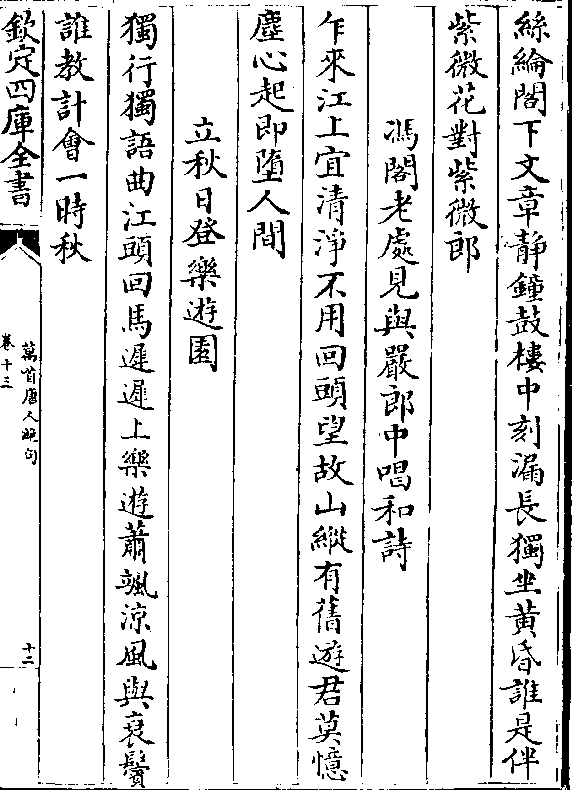 絲綸閣下文章靜鐘鼓樓中刻漏長獨坐黄昏誰是伴
紫微花對紫微郎
馮閣老處見與嚴郎中唱和詩
乍來江上宜清淨不用回頭望故山縱有舊遊君莫憶
塵心起即墮人間
立秋日登樂遊園
獨行獨語曲江頭回馬遲遲上樂遊蕭颯涼風與衰鬢
誰教計會一時秋
欽定四庫全書
萬首唐人絶句
卷十三
十二